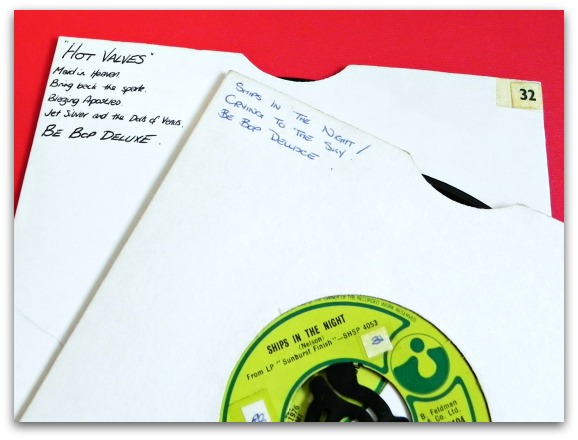 "HOT VALVES"
Maid in Heaven
Bring back the spark.
Blazing Apostles
Jet Silver and the Dolls of Venus.
BE BOP DELUXE.
32
SHIPS IN THE NIGHT /
CRYING TO THE SKY.
BE BOP DELUXE
OWNER OF THE RECORDED WORK RESERVED
SHIPS IN THE NIGHT
(Nelson)
From LP "Sunburst Finish"—SHSP 4053
1976
B. Feldman
& Co. Ltd.
104